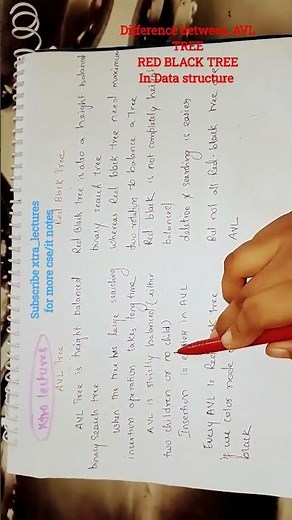 Difference between AVL
TREE
RED BLACK TREE
In Data structure
Subscribe xtra_lectures
for more cse/it notes
Xtra lectures
AVL Tree
AVL Tree is height balanced
binary search tree
When the tree has large searching
insertion operation takes long time
AVL is strictly balanced (either
two children or no child)
Insertion is in AVL
Every AVL is Red black tree
if we color node
black
Red Black Tree
Red Black tree is also a height balanced
binary search tree
whereas Red black tree need maximum
two rotation to balance a tree
Red black is not completely height
balanced
deletion & searching is easier
But not all Red-black tree are
AVL